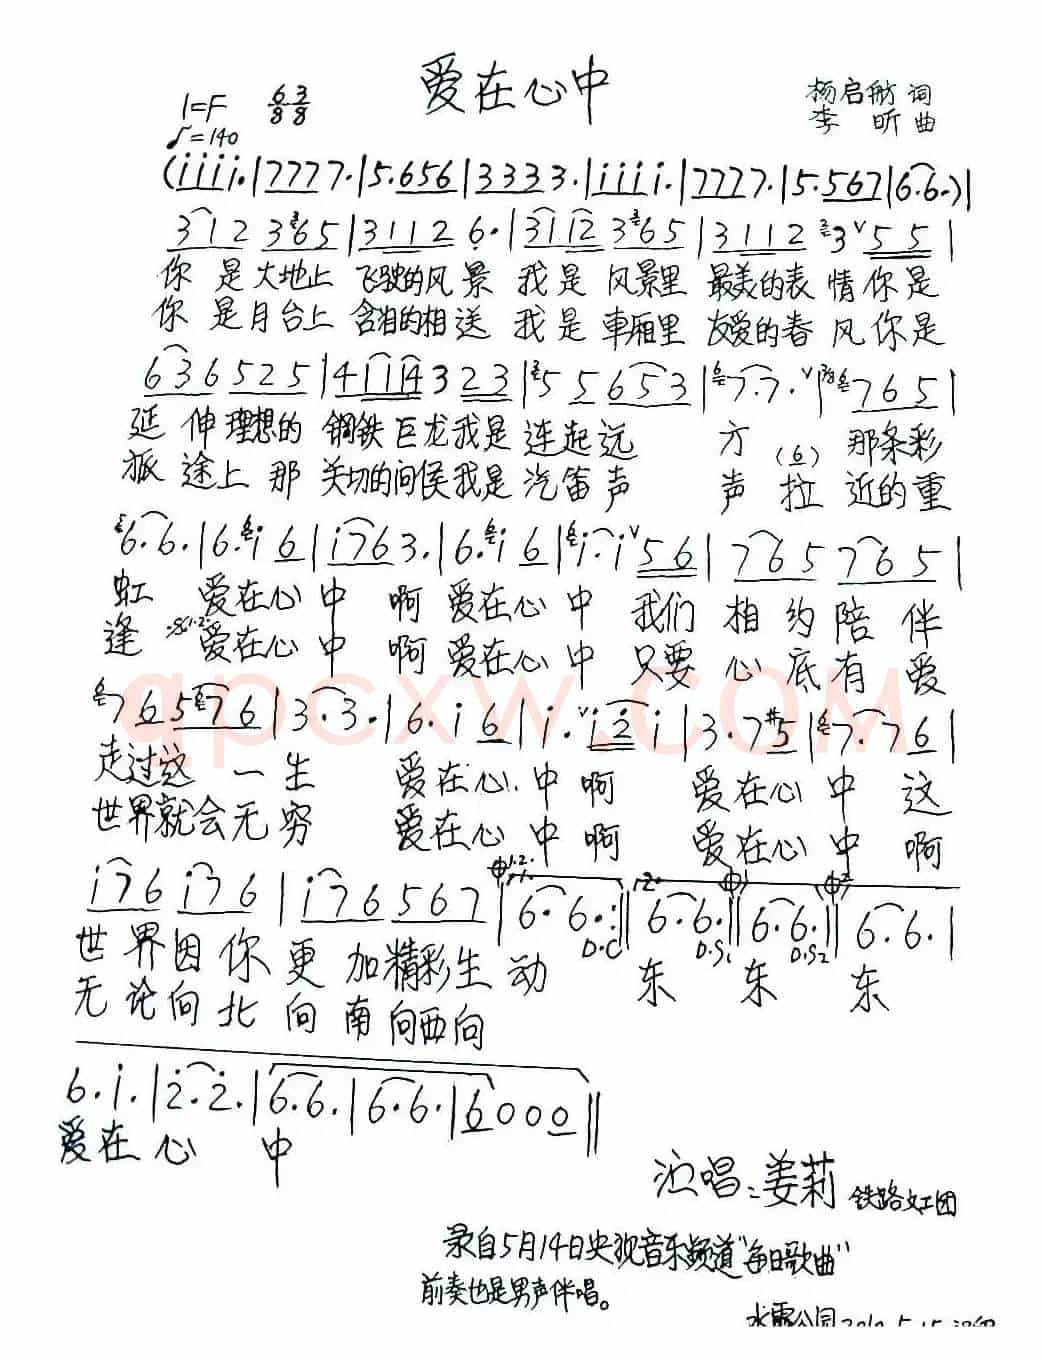 爱在心中
1=F 6/8 3/8
♪=140
杨启舫 词
李 昕 曲
(i i i i. | 7 7 7 7. | 5. 6 5 6 | 3 3 3 3. | i i i i. | 7 7 7 7. | 5. 5 6 7 | 6. 6.) |
3 1 2 3 6 5 | 3 1 1 2 6. | 3 1 1 2 3 6 5 | 3 1 1 2 3 ∨ 5 5 |
你是大地上 飞驶的风景 我是风景里 最美的表情你是
你是月台上 含泪的相送 我是車厢里 友爱的春风你是
6 3 6 5 2 5 | 4 1 1 4 3 2 3 | 5 5 6 5 3 | 7. 7. ∨ | 7 6 5 |
延伸理想的 钢铁巨龙我是连起远 方 (6) 那条彩
旅途上那 关切的问侯我是汽笛声 声 拉近的重
6. 6. | 6. i 6 | i 7 6 3. | 6. i 6 | i. i ∨ 5 6 | 7 6 5 7 6 5 |
虹 爱在心中 啊 爱在心中 我们相约陪伴
逢 爱在心中 啊 爱在心中 只要心底有爱
7 6 5 7 6 | 3. 3. | 6. i 6 | i. ∨ i 2 i | 3. 7 #5 | 7. 7 6 |
走过这一生 爱在心中啊 爱在心中 这
世界就会无穷 爱在心中啊 爱在心中 啊
i 7 6 i 7 6 | i 7 6 5 6 7 | 6. 6. :|| 6. 6. || 6. 6. || 6. 6. |
D.C D.S1 D.S2
世界因你更加精彩生动 东 东 东
无论向北向南向西向
6. i. | 2. 2. | 6. 6. | 6. 6. | 6 0 0 0 ||
爱在心中
演唱:姜莉 铁路文工团
录自5月14日央视音乐频道"每日歌曲"
前奏也是男声伴唱。
qpcxw.com